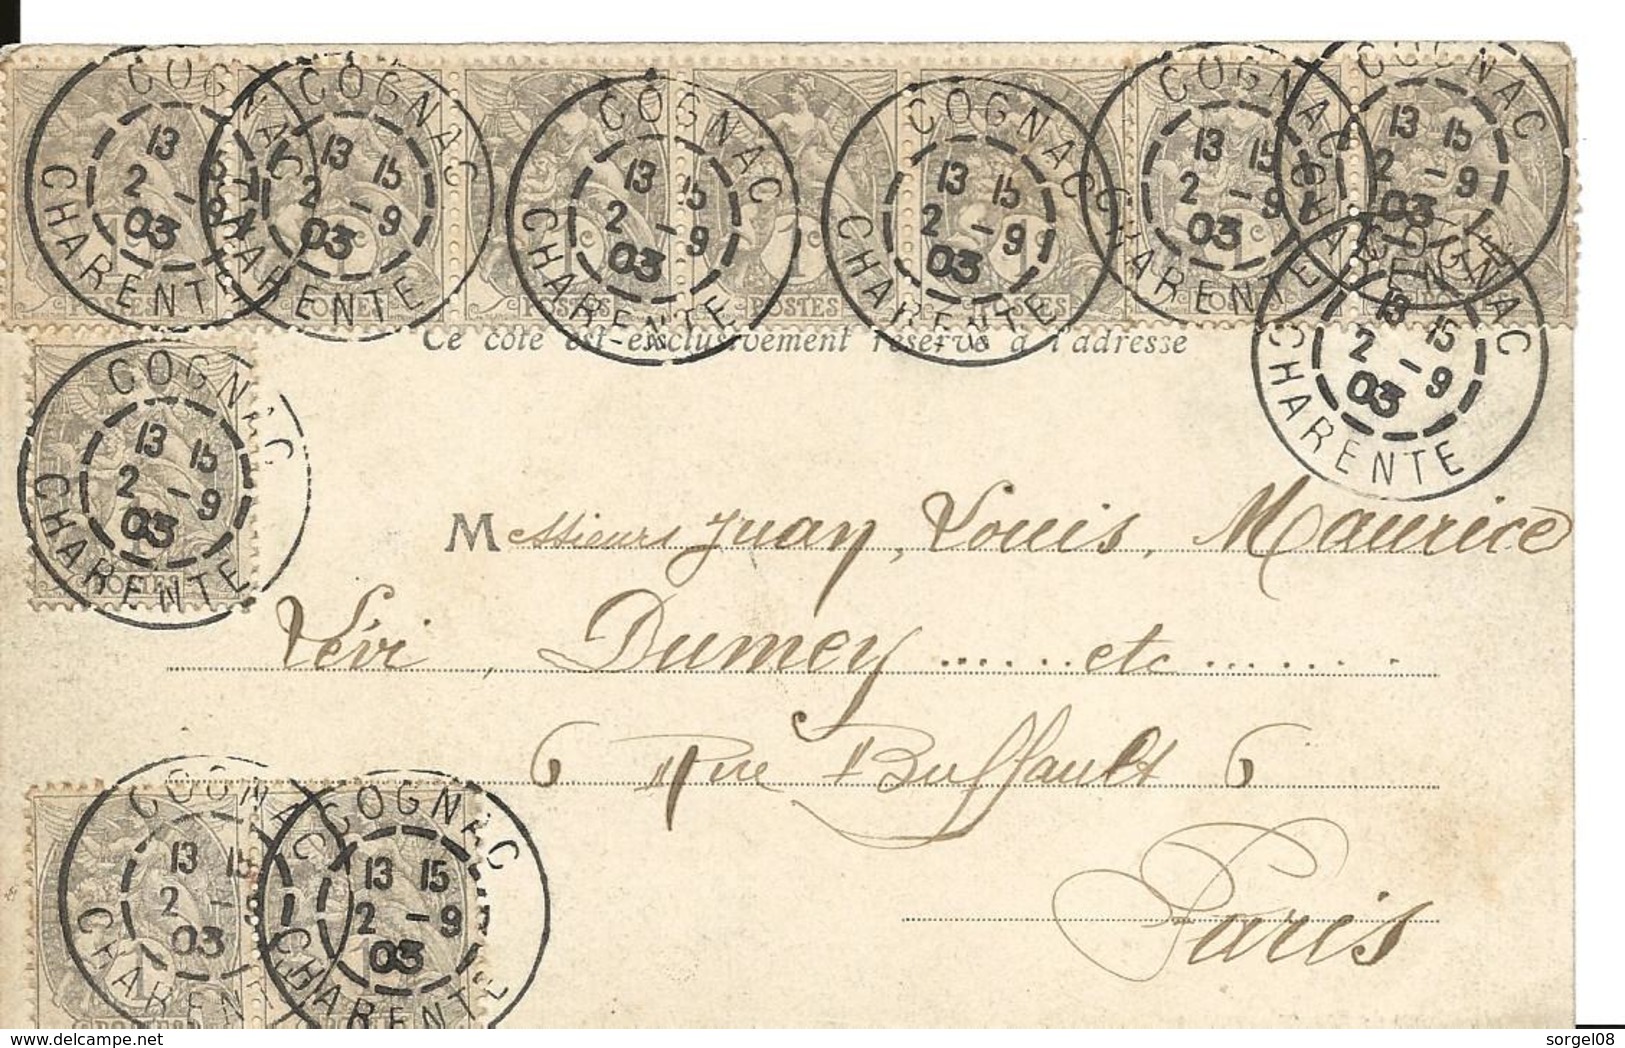 COGNAC 13 15 2 -9 03 CHARENTE
COGNAC 13 15 2 -9 03 CHARENTE
COGNAC 13 15 2 -9 03 CHARENTE
COGNAC 13 15 2 -9 03 CHARENTE
COGNAC 13 15 2 -9 03 CHARENTE
COGNAC 13 15 2 -9 03 CHARENTE
POSTES POSTES POSTES POSTES POSTES POSTES
Ce côté est exclusivement réservé à l'adresse
COGNAC 13 15 2 -9 03 CHARENTE
COGNAC 13 15 2 -9 03 CHARENTE
POSTES
Messieurs Juan, Louis, Maurice
Lévi, Dumey ...... etc .......
6 Rue Buffault 6
Paris
COGNAC 13 15 2 -9 03 CHARENTE
COGNAC 13 15 2 -9 03 CHARENTE
www.delcampe.net
sorgel08